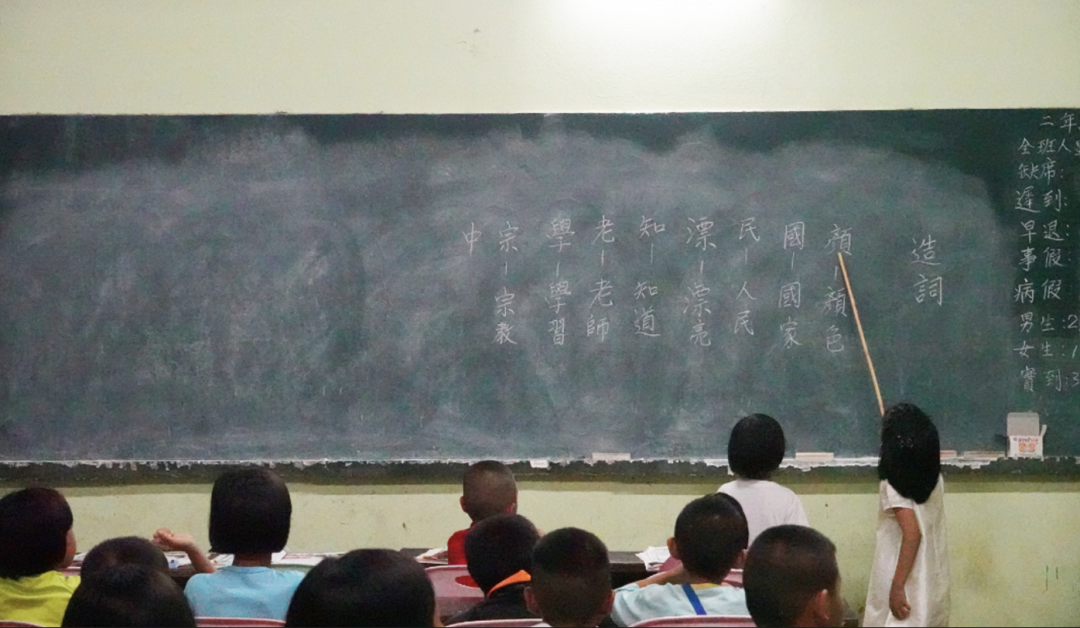 造詞
顏-顏色
國-國家
民-人民
漂-漂亮
知-知道
老-老師
學-學習
宗-宗教
中
二年
全班人
缺席:
遲到:
早退:
事假:
病假
男生:2
女生:1
實到:3